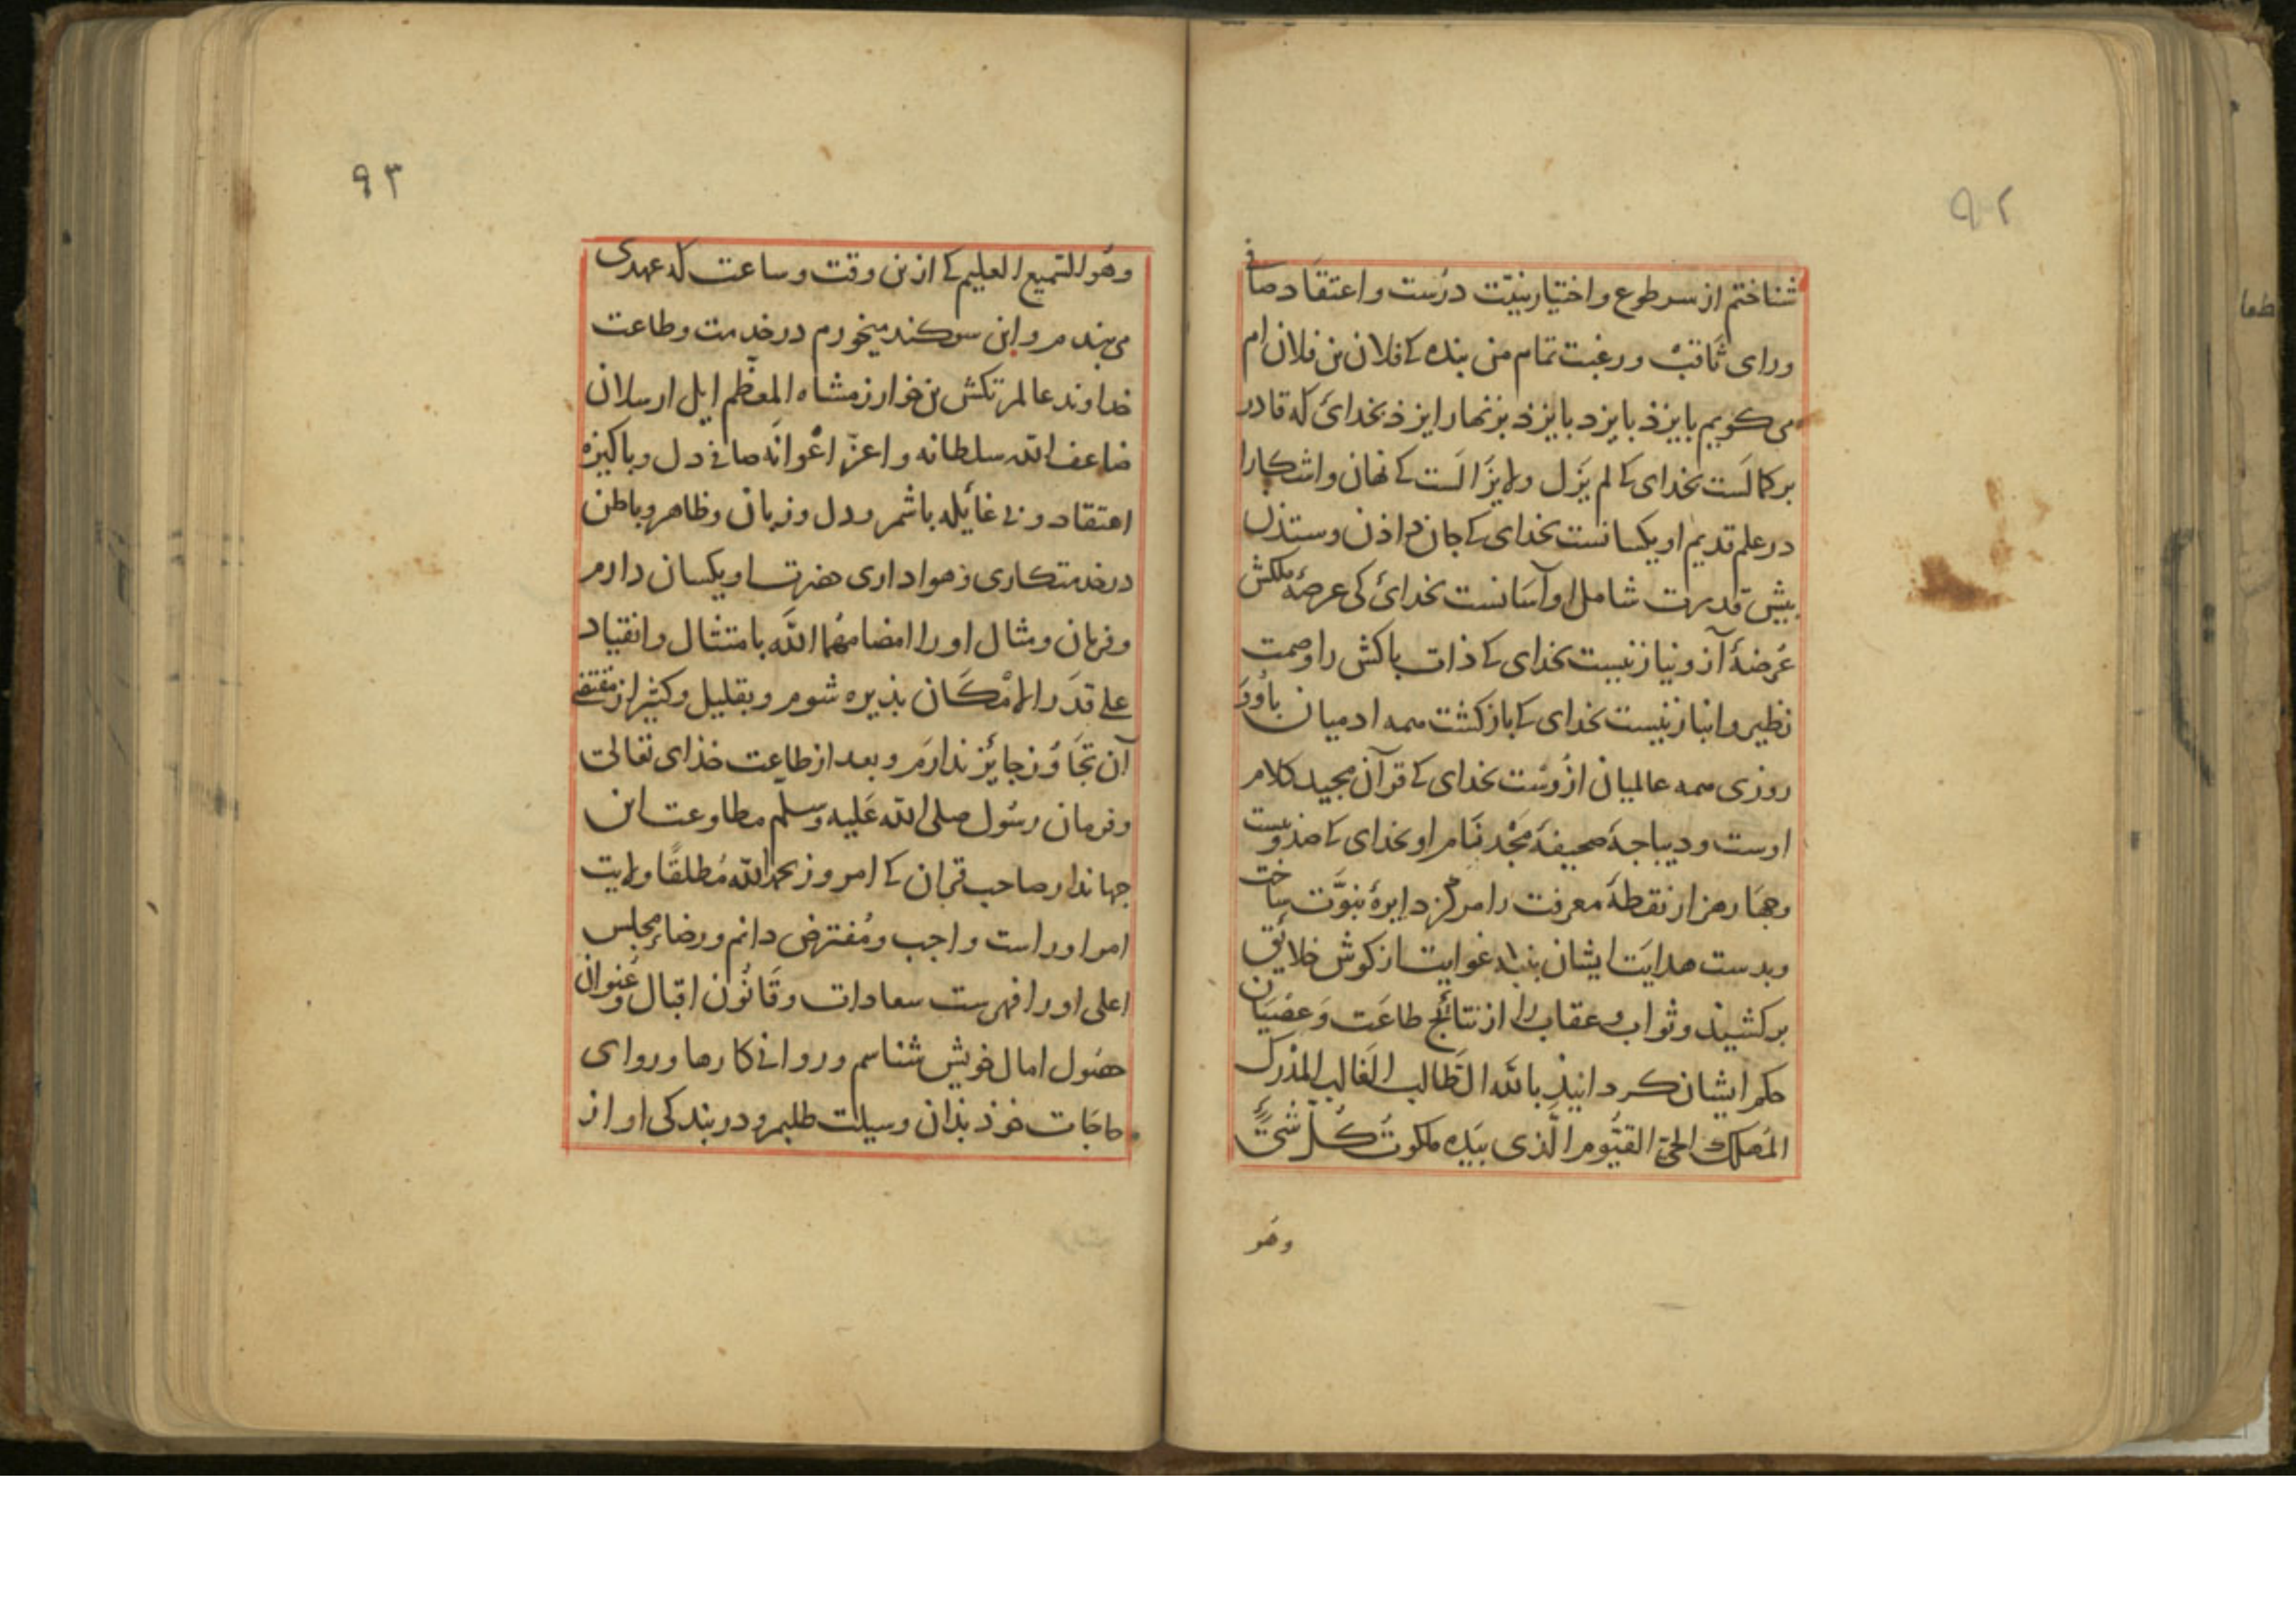 ٩٢
شناختم از سر طوع و اختیار بنیّت درُست و اعتقَاد صافی
و رای ثاقبْ و رغبت تمام من بنده کے فلان بن فلان ام
می کویم بایزذ بایزد بایزذ بزنهار ایزذ بخدائ که قادر
بر کمالَست بخدای کے لم یَزل ولایزَالَست کے نهان و اشکارا
در علم قدیم او یکسانست بخدای کے جان داذن و ستذن
بیش قدرت شامل او آسَانست بخدائ کی عرصۀ ملکش
عُرضۀ آز و نیاز نیست بخدای کے ذات باکش را وصمت
نظیر و انباز نیست بخدای کے بازکشت همه ادمیان باُو وَ
روزی همه عالمیان ازُوسْت بخدای کے قرآن مجید کلام
اوست و دیباجۀ صحیفۀ مَجْد نَام او بخدای کے صذ و بیست
وجهَار هزار نقطۀ معرفت را مرکز دایرۀ نبوَّت ساخت
و بدست هدایَت ایشان بنبۀ غوایت از کوش خلایٔق
برکشیذ و ثواب و عقاب را از نتائج طاعَت وَ عصْیَان
حکم ایشان کردانیذ باللّٰه الطَّالب الغَالب المُدْرک
المُهلک الحیّ القیُّوم الَّذی بیَدِه ملکوتُ کُلِّ شَیْءٍ
وهَو
٩٣
وهُو السّمیع العلیم کے ازین وقت و ساعت که عهدی
می بندم و این سوکند میخورم در خدمت و طاعت
خداوند عالم تکش بن خوارزمشاه المعظّم ایل ارسلان
ضاعف اللّه سلطانه و اعزّ اعْوانَه صافی دل و باکیزه
اعتقاد و بی غائله باشم و دل و زبان و ظاهر و باطن
در خدمتکاری و هواداری حضرت او یکسان دارم
و فرمان و مثال او را امضاهُمَا اللَّه بامتثال و انقیاد
علے قدَر الامْکَان بذیره شوم و بقلیل و کثیر از مقتضے
آن تجَاوُز جایٔز ندارَم و بعد از طاعت خذای تعالی
و فرمان رسُول صلی اللّه عَلیه وسلّم مطاوعت این
جهاندار صاحب قران کے امروز بحمد اللّه مُطلقًا ولایت
امر او راست واجب و مُفترض دانم و رضاء مجلس
اعلی او را فهرست سعادات و قَانُون اقبال و عُنوان
حصُول امال خویش شناسم و روانی کارها و روای
حاجَات خوذ بذان وسیلت طلبم و در بندکی او از